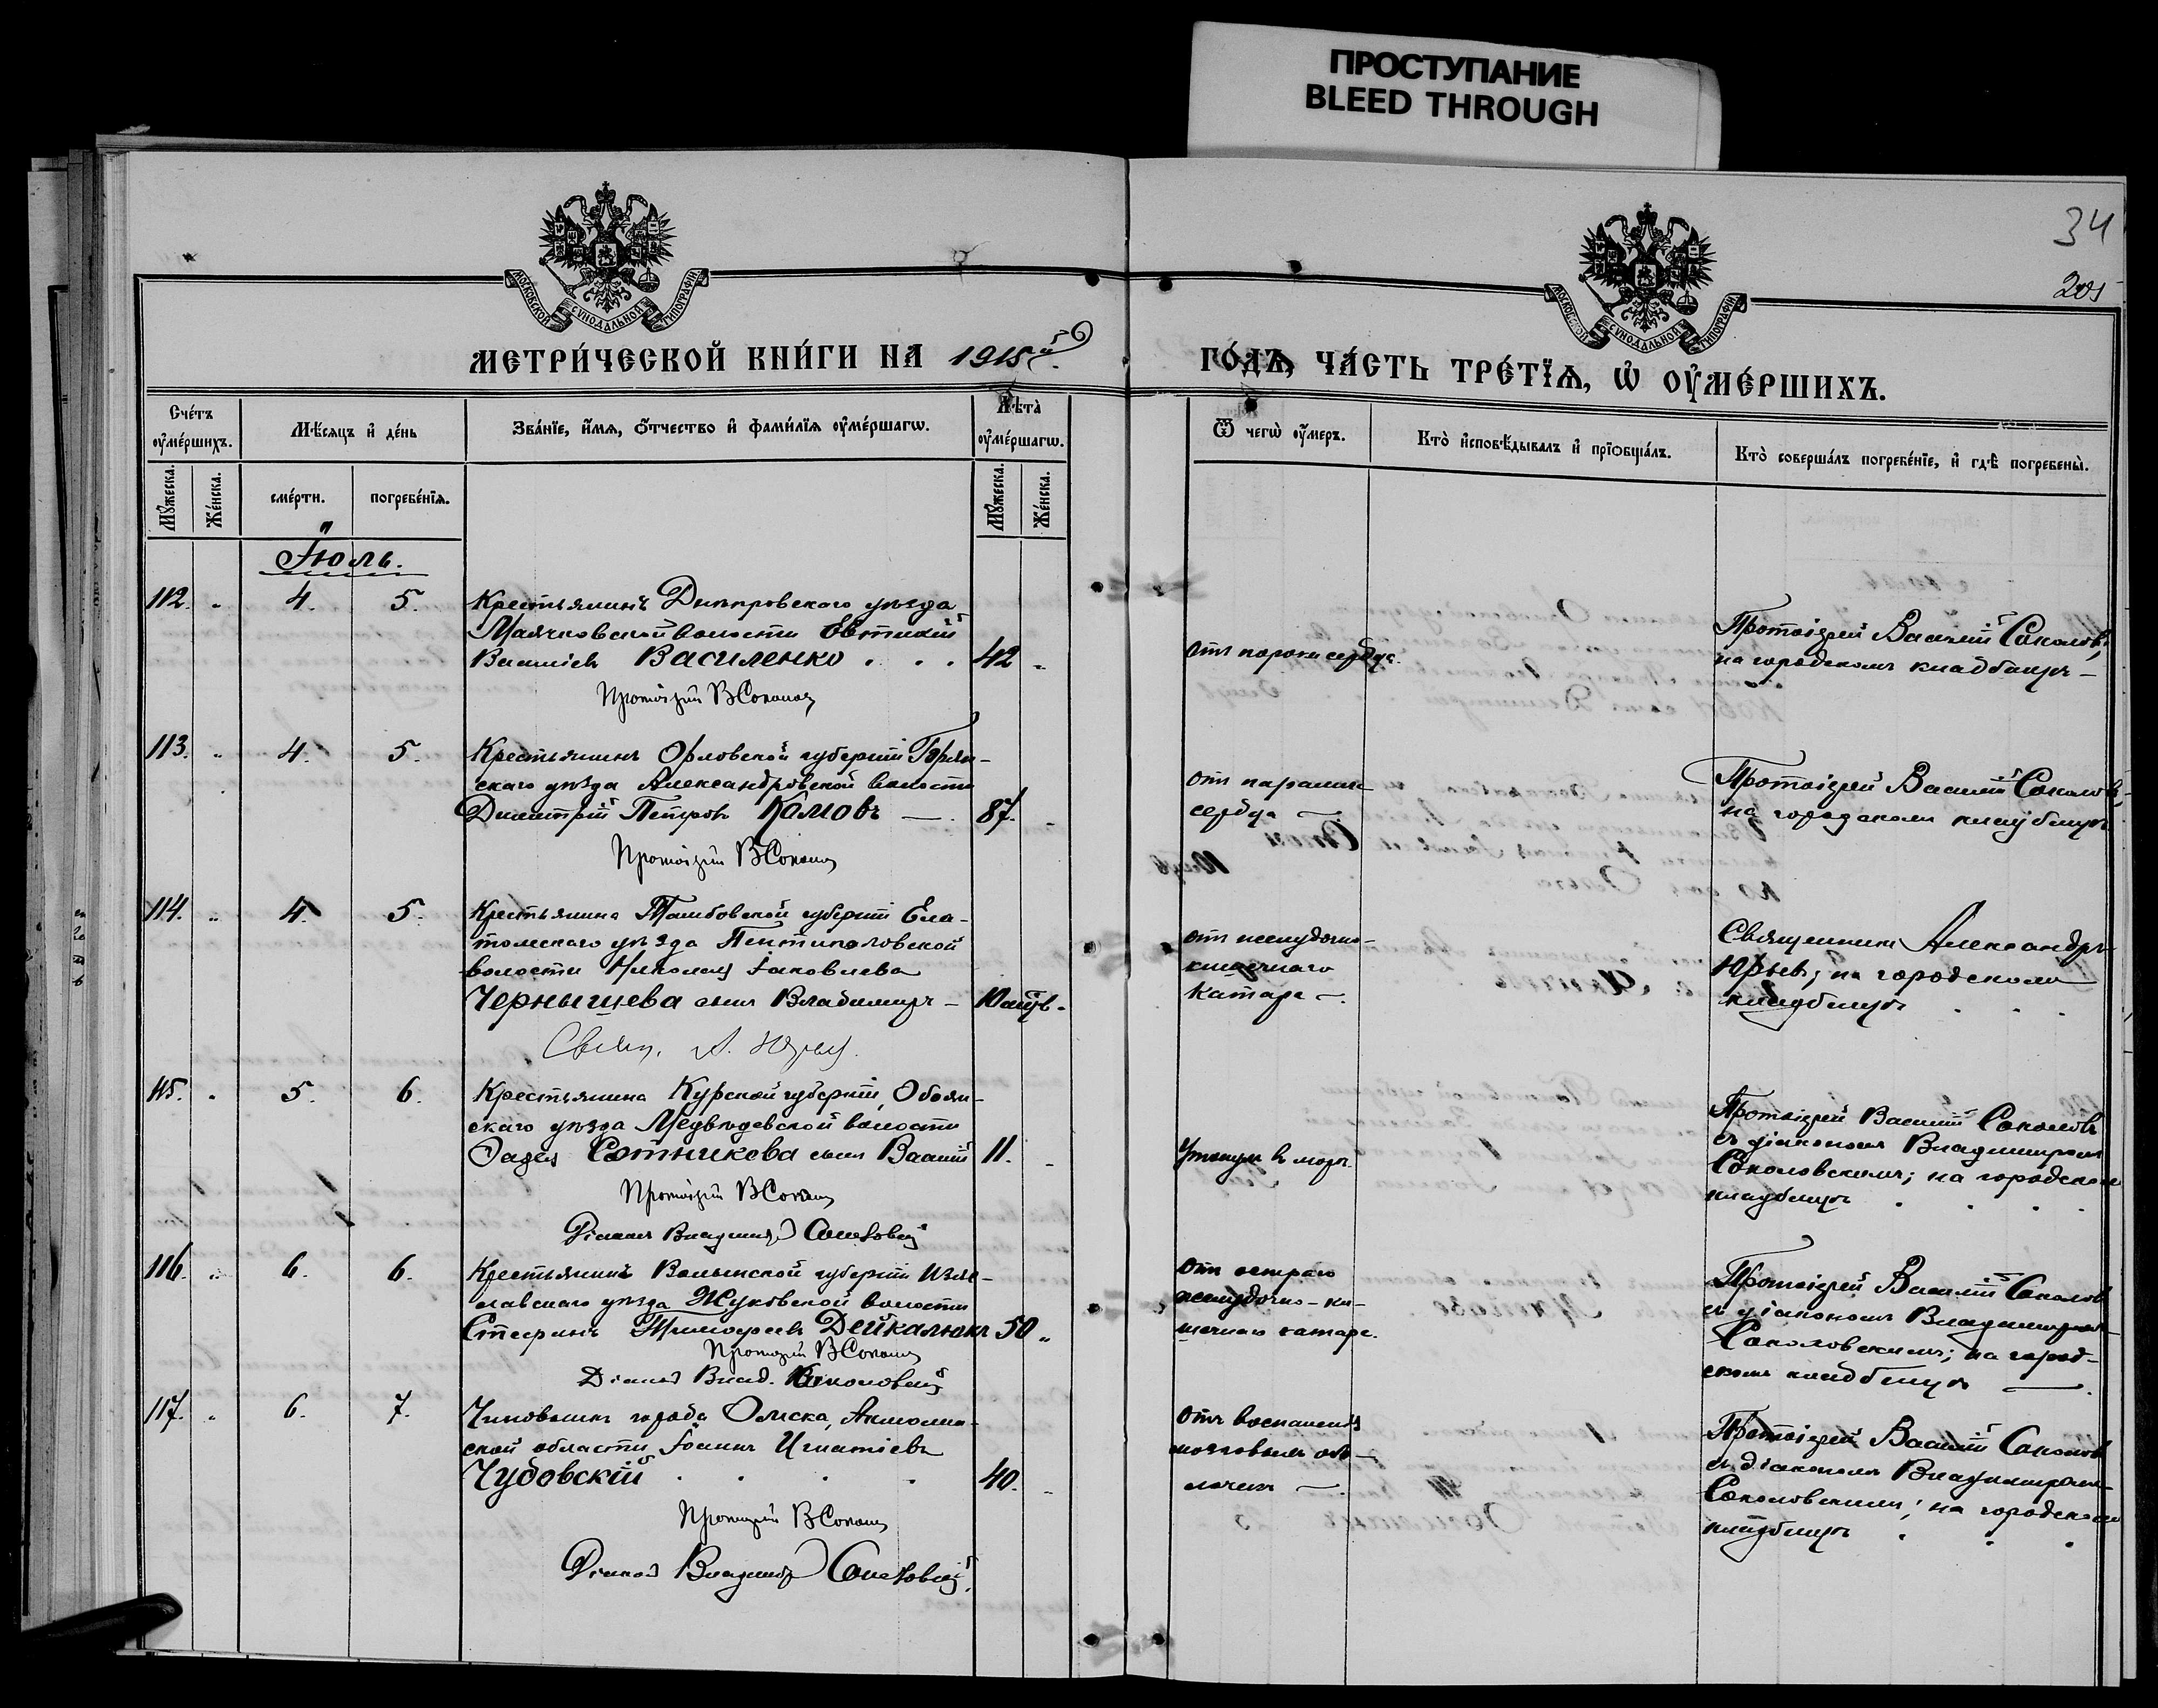 ПРОСТУПАНИЕ
BLEED THROUGH
34
205
МОСКОВСКОЙ СѴНОДАЛЬНОЙ ТИПОГРАФІИ
МОСКОВСКОЙ СѴНОДАЛЬНОЙ ТИПОГРАФІИ
МЕТРИ́ЧЕСКОЙ КНИ́ГИ НА 1915й
ГО́ДЪ, ЧА́СТЬ ТРЕ́ТЇѦ, Ѡ҆ ОУ҆МЕ́РШИХЪ.
Сче́тъ оу҆ме́ршихъ.
Мѣ́сѧцъ и҆ де́нь
Зва́нїе, и҆́мѧ, ѻ҆́тчество и҆ фами́лїѧ оу҆ме́ршагѡ.
Лѣ́та оу҆ме́ршагѡ.
Ѿ чегѡ̀ оу҆́меръ.
Кто̀ и҆сповѣ́дывалъ и҆ прїѻбща́лъ.
Кто̀ соверша́лъ погребе́нїе, и҆ гдѣ̀ погребены̀.
Мꙋ́жеска.
Же́нска.
сме́рти.
погребе́нїѧ.
Мꙋ́жеска.
Же́нска.
Іюль.
112. 4. 5. Крестьянинъ Днѣпровскаго уѣзда
Маячковской волости Евтихій
Васильевъ Василенко . . . 42
Протоіерей В Соколовъ
отъ порока сердца.
Протоіерей Василій Соколовъ,
на городскомъ кладбищѣ —
113. 4. 5. Крестьянинъ Орловской губерніи
скаго уѣзда Александровской волости
Димитрій Петровъ Камовъ — 87.
Протоіерей В Соколовъ
отъ паралича
сердца —
Протоіерей Василій Соколовъ,
на городскомъ кладбищѣ
114. 4. 5. Крестьянина Тамбовской губерніи Ела-
томскаго уѣзда
волости Николая Іаковлева
Чернышева сынъ Владимиръ —
Свящ. А. Юрьевъ.
отъ желудочно-
кишечнаго
катара —.
Священникъ Александръ
Юрьевъ; на городскомъ
кладбищѣ . . .
115. 5. 6. Крестьянина Курской губерніи, Обоян-
скаго уѣзда Медвѣдевской волости
Сотникова сынъ Василій 11.
Протоіерей В Соколовъ
Діаконъ Владимиръ Соколовскій
Утонулъ въ морѣ.
Протоіерей Василій Соколовъ
съ діакономъ Владимиромъ
Соколовскимъ; на городскомъ
кладбищѣ . . . .
116. 6. 6. Крестьянинъ Волынской губерніи Изяс-
лавскаго уѣзда Жуковской волости
Стефанъ Тимофеевъ Дейкалюкъ 50
Протоіерей В Соколовъ
Діаконъ Влад. Соколовскій
отъ остраго
желудочно-ки-
шечнаго катара.
Протоіерей Василій Соколовъ
съ діакономъ Владимиромъ
Соколовскимъ; на город-
скомъ кладбищѣ —.
117. 6. 7. Чиновникъ города Омска, Акмолин-
ской области, Іоаннъ Игнатіевъ
Чудовскій . . . . 40.
Протоіерей В Соколовъ
Діаконъ Владимиръ Соколовскій.
отъ воспаленія
мозговыхъ обо-
лочекъ —
Протоіерей Василій Соколовъ
съ діакономъ Владимиромъ
Соколовскимъ; на городскомъ
кладбищѣ . . .